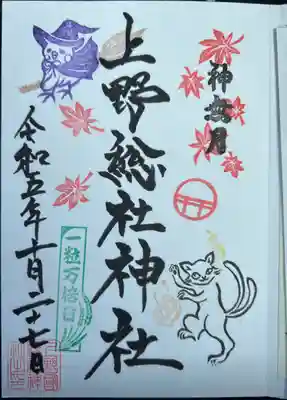 神無月
上野總社神社
一粒万倍日
令和五年十月二十七日